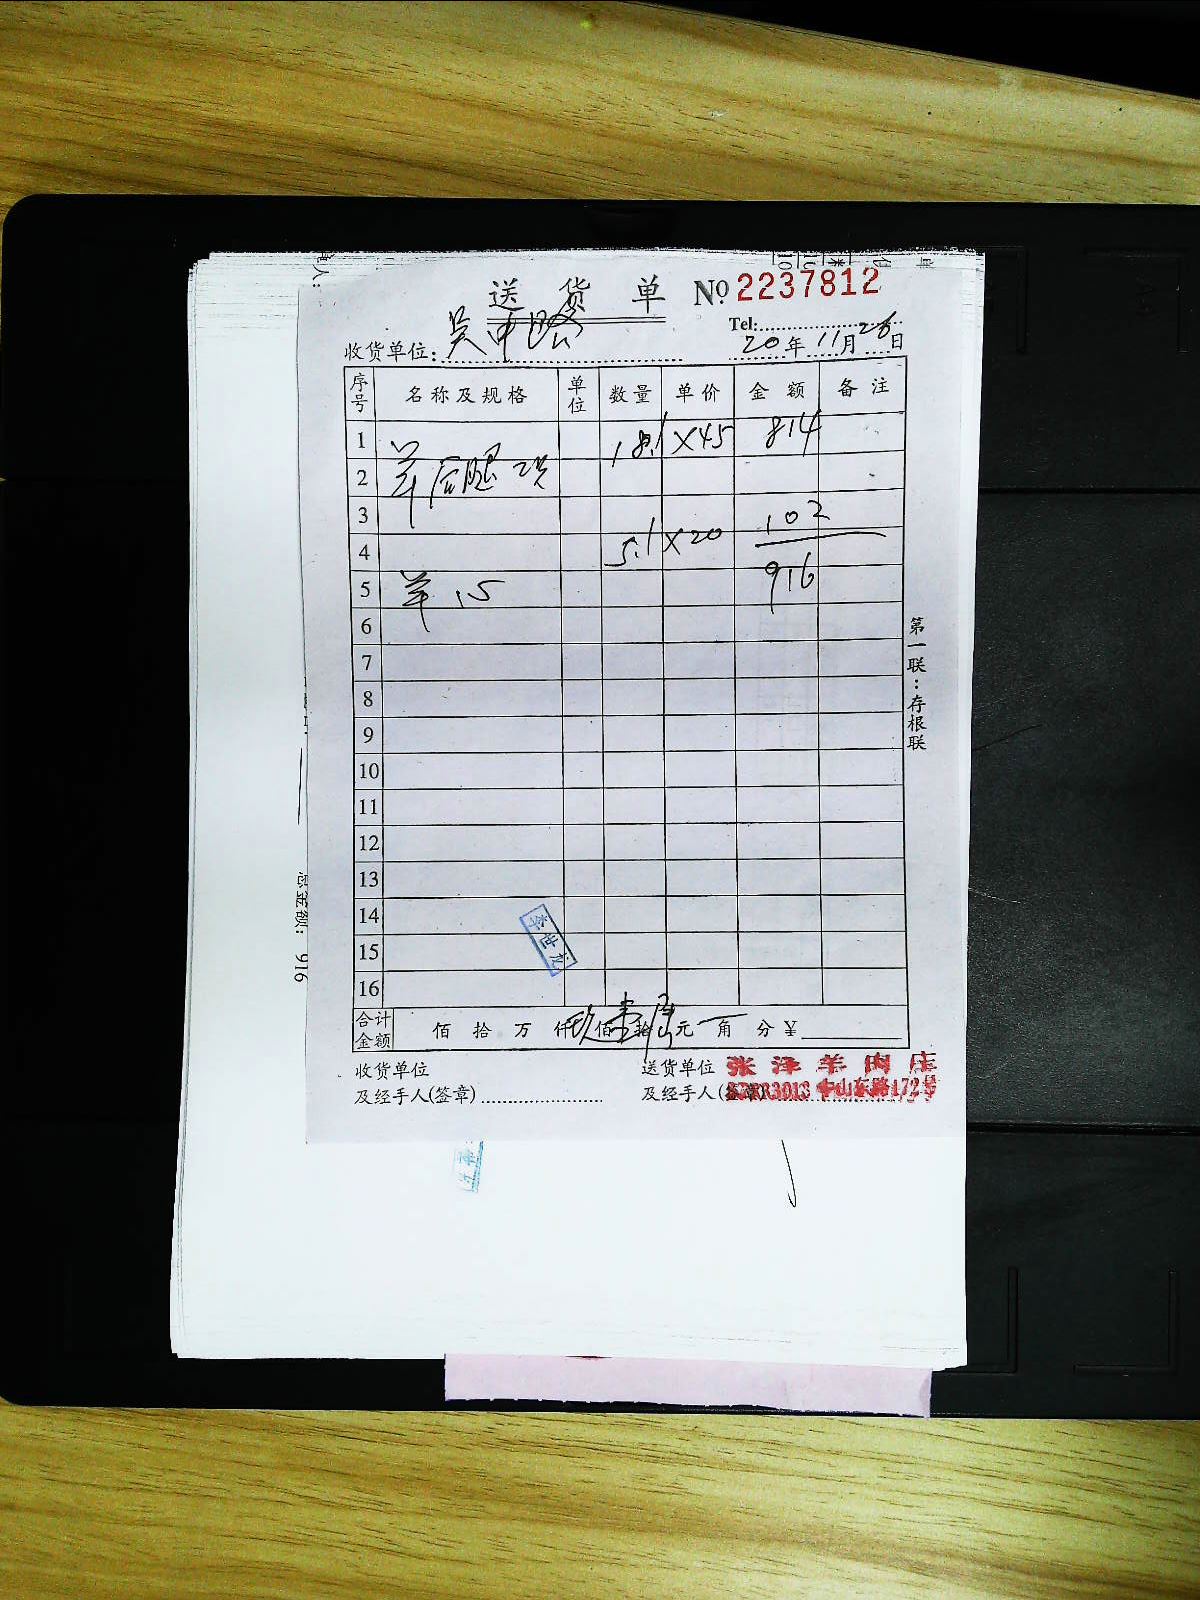 送货单 No 2237812
Tel:
收货单位: 吴中路
20年11月26日
序号 名称及规格 单位 数量 单价 金额 备注
1 18.1 ×45 814
2 羊后腿2只
3 102
4 5.1 ×20
5 羊心 916
6
7
8
9
10
11
12
13
14
15
16
李世龙
合计金额 佰 拾 万 仟 玖佰 壹拾 元 角 分 ¥
收货单位 送货单位 张泽羊肉庄
及经手人(签章) 及经手人(签章) 中山东路172号
第一联:存根联
总金额: 916